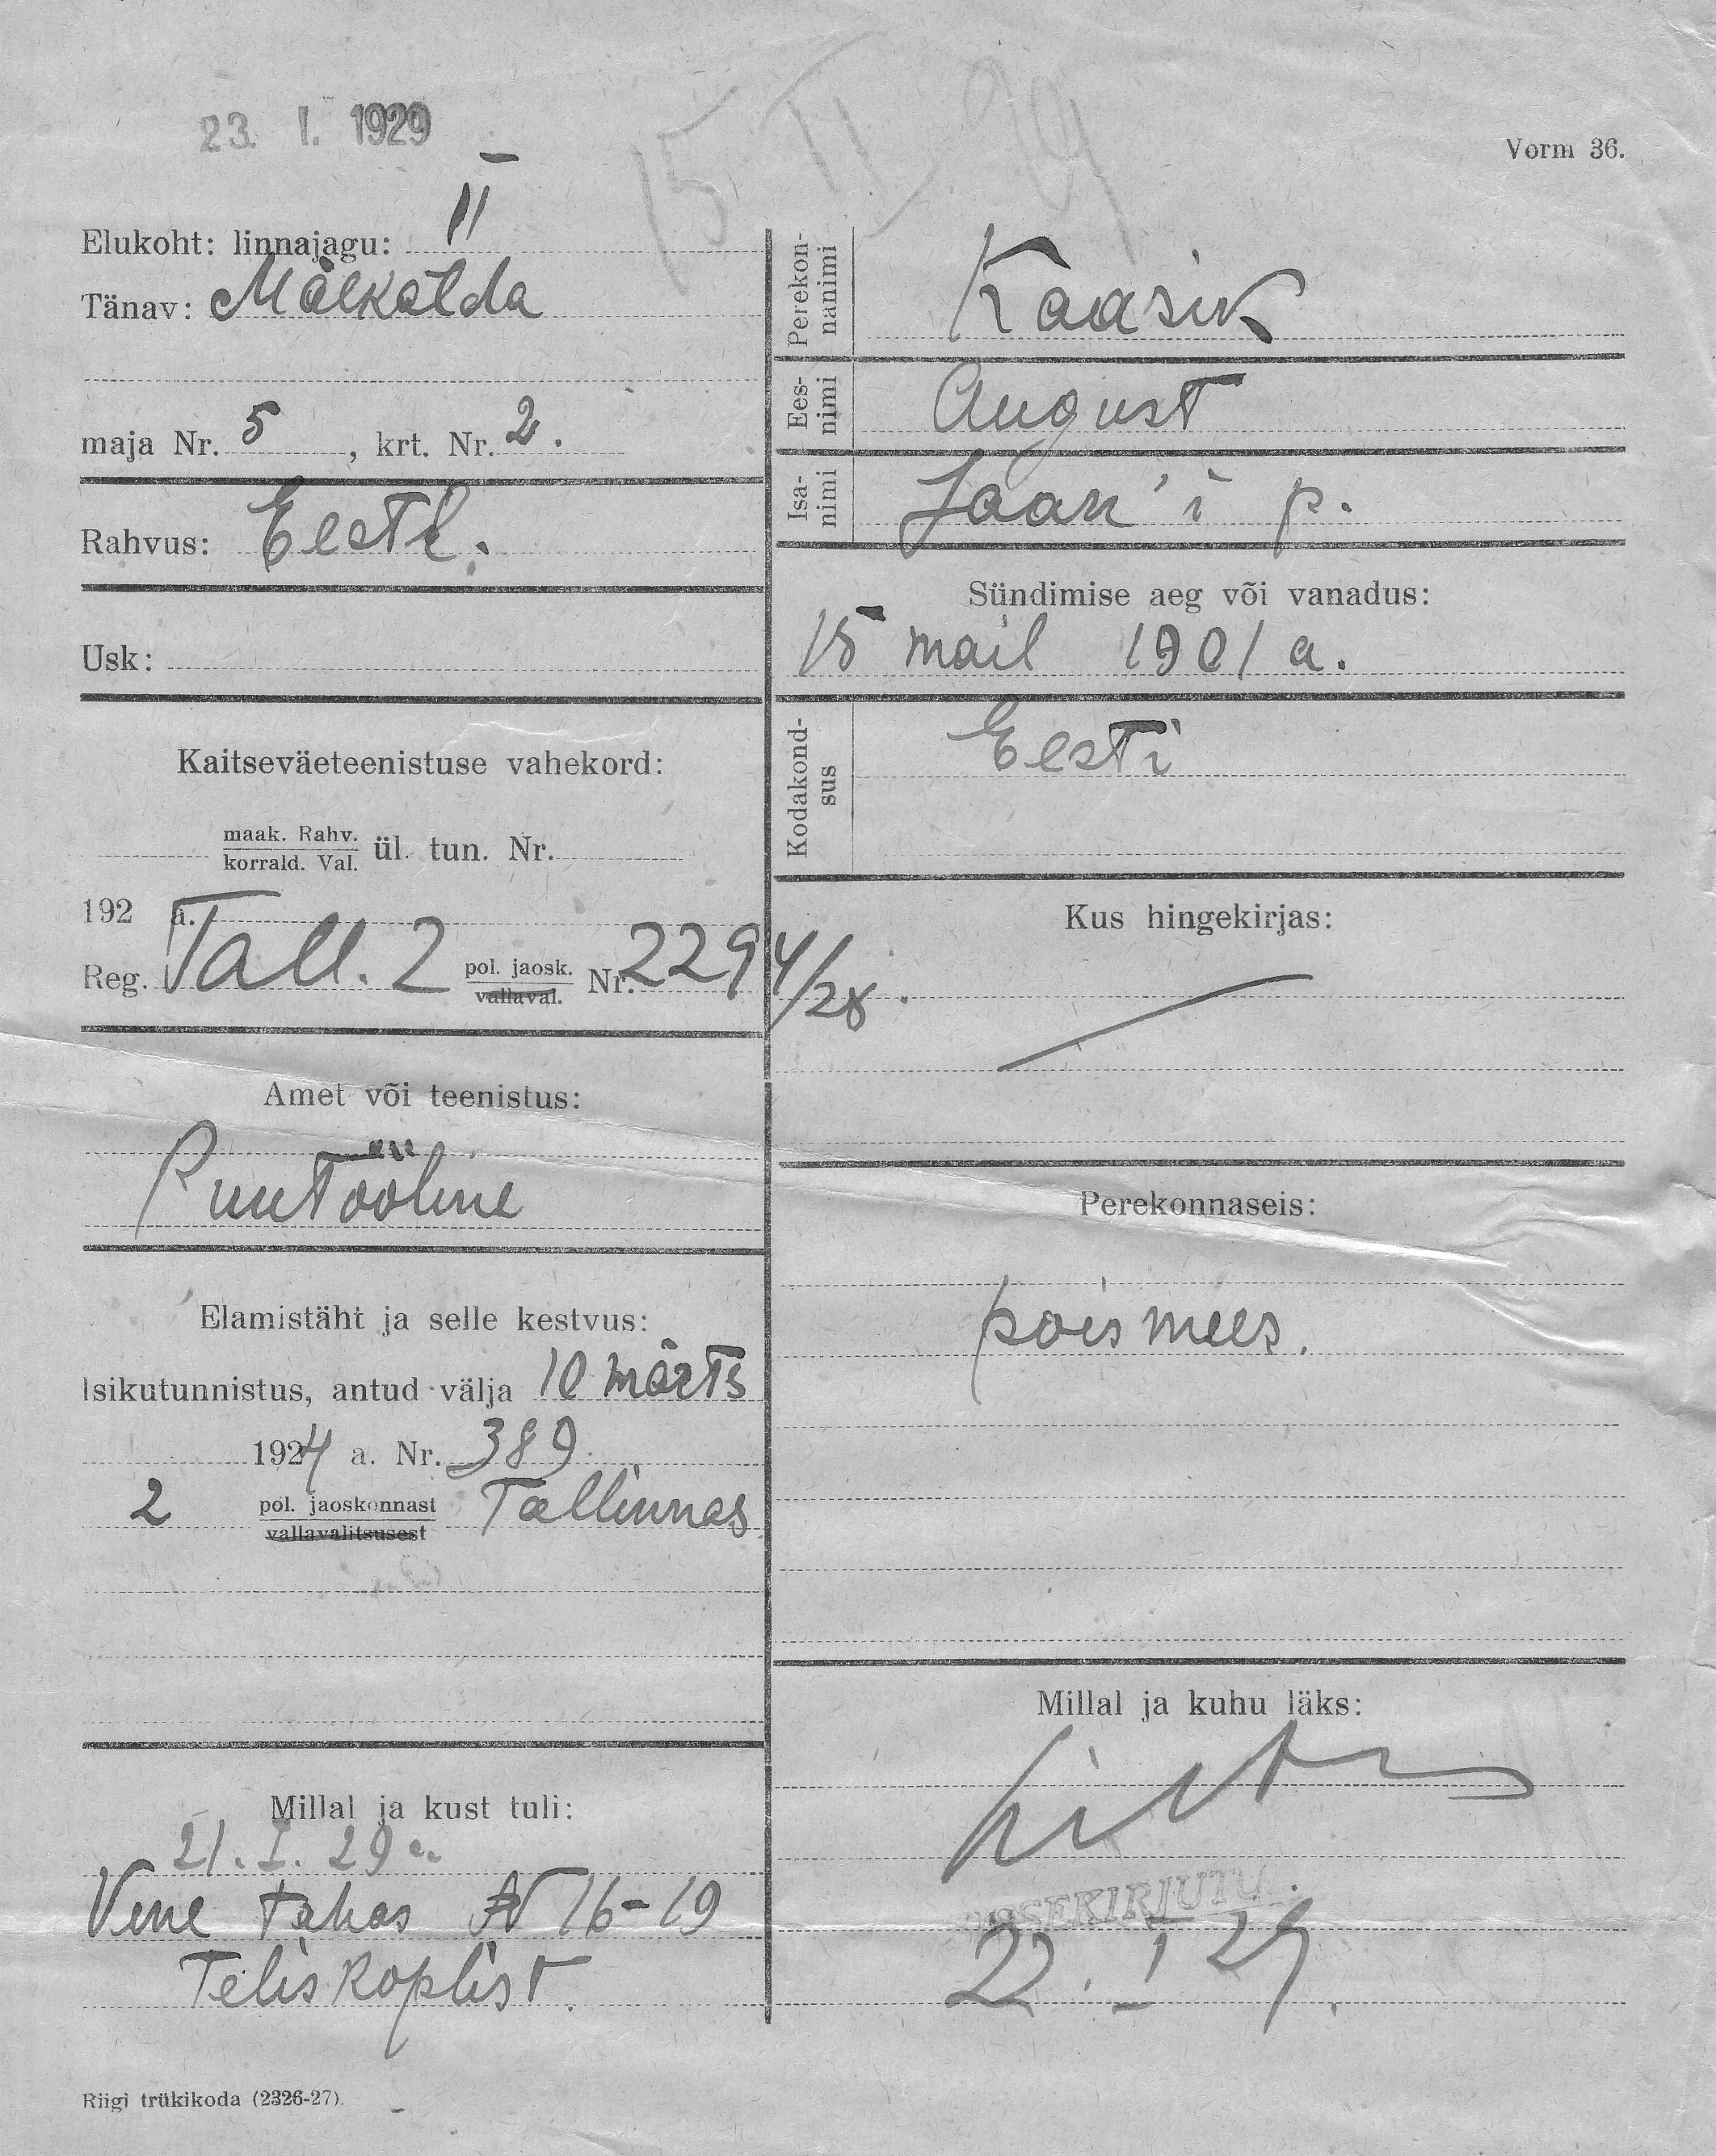 23. I. 1929
15 II 29
Vorm 36.
Elukoht: linnajagu: II
Tänav: Mäekalda
maja Nr. 5, krt. Nr. 2.
Rahvus: Eesti.
Usk:
Kaitseväeteenistuse vahekord:
maak. Rahv.
korrald. Val. ül. tun. Nr.
192 a.
Reg. Tall. 2 pol. jaosk. Nr. 2294/28.
vallaval.
Amet või teenistus:
Puutööline
Elamistäht ja selle kestvus:
Isikutunnistus, antud välja 10 märts
1924 a. Nr. 389
2 pol. jaoskonnast Tallinnas
vallavalitsusest
Millal ja kust tuli:
21. I. 29 a.
Vene tahas N 16-19
Teliskoplist.
Perekon-
nanimi
Kaasik
Ees-
nimi
August
Isa-
nimi
Jaan'i p.
Sündimise aeg või vanadus:
15 mail 1901 a.
Kodakond-
sus
Eesti
Kus hingekirjas:
Perekonnaseis:
poismees.
Millal ja kuhu läks:
SSEKIRJUTU
22. I 29.
Riigi trükikoda (2326-27).